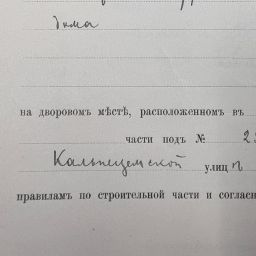 дома
на дворовомъ мѣстѣ, расположенномъ въ
части подъ № 2
Кальнецемской улицѣ
правиламъ по строительной части и соглас